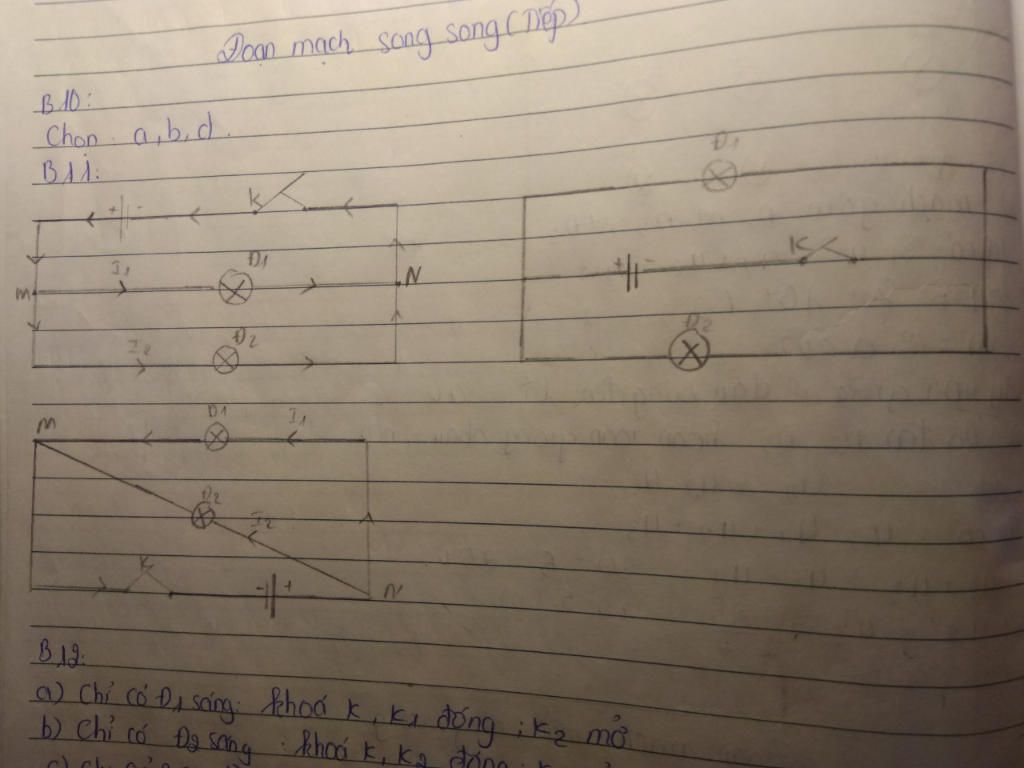 Đoạn mạch song song (Tiếp)
B.10:
Chọn: a, b, d.
B.11:
+ -
K
Đ1
I1
M
N
I2
Đ2
Đ1
+ -
K
Đ2
M
Đ1
I1
Đ2
I2
K
- +
N
B.12:
a) Chỉ có Đ1 sáng: khoá K, K1 đóng; K2 mở
b) Chỉ có Đ2 sáng: khoá K, K2 đóng;